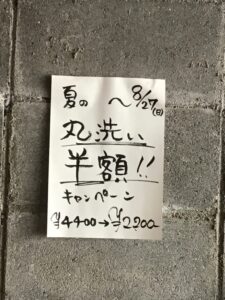 夏の 〜8/27(日)
丸洗い
半額!!
キャンペーン
¥4400→¥2200